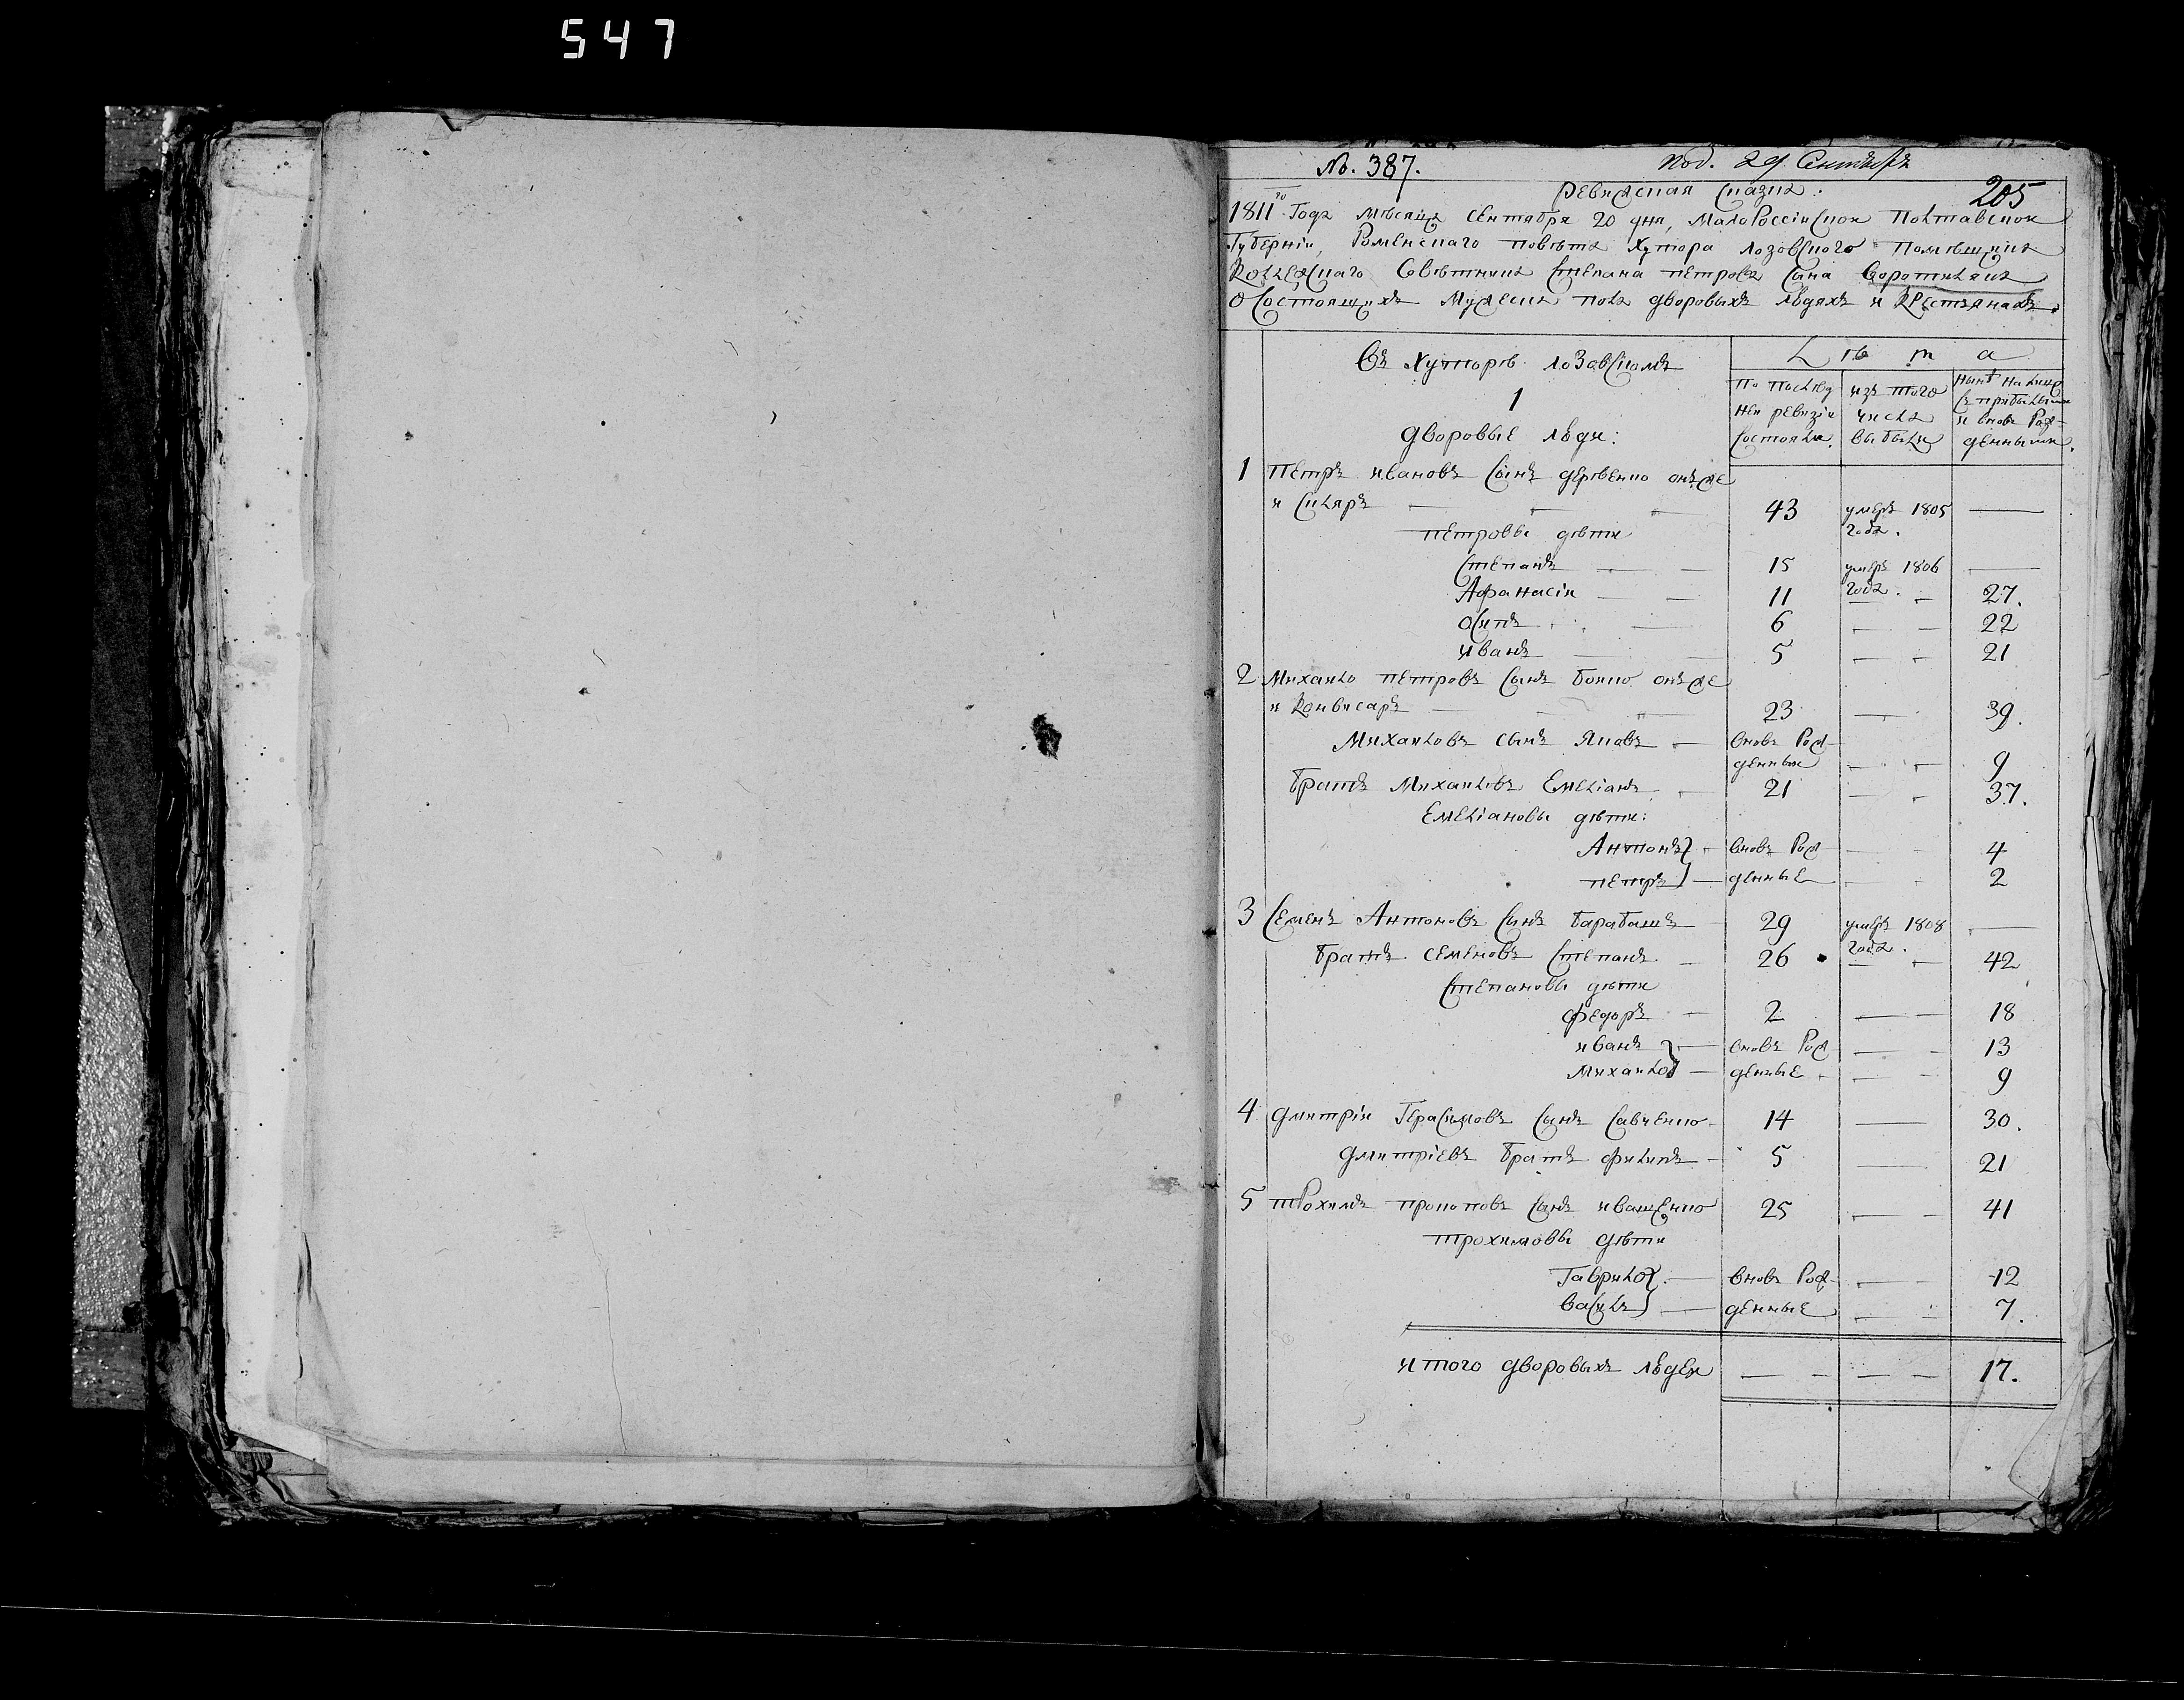 547
№. 387. Под. 29 Сентября
Ревизская сказка. 205
1811го Года месяца сентября 20 дня, МалоРоссійской Полтавской
Губерніи, Роменскаго повѣта Хутора лозовского Помѣщика
Коллежскаго Совѣтника Степана петрова Сына
О Состоящихъ Мужеска пола дворовыхъ людяхъ и крестьянахъ.
Въ Хуторѣ лозовскомъ
Лѣта
1
дворовые люди:
По послѣд
ней ревизіи
состояли.
изъ того
числа
выбыли
нынѣ на лицо
съ прибылыми
и вновь Рож-
денными.
1 Петръ ивановъ Сынъ онъ же
и Скляръ — 43 умеръ 1805 —
года.
петровы дѣти
Степанъ — 15 умеръ 1806 —
года.
Афанасій — 11 — 27.
Осипъ — 6 — 22
иванъ — 5 — 21
2 Михайло петровъ Сынъ Бойко онъ же
и Конвисаръ — 23 — 39.
Михайловъ сынъ Яковъ — вновь Рож-
денный — 9
братъ Михайловъ Емеліанъ — 21 — 37.
Емеліановы дѣти:
Антонъ } — вновь Рож- — 4
петръ } — денные — 2
3 Семенъ Антоновъ Сынъ барабашъ — 29 умеръ 1808 —
года.
братъ семеновъ Степанъ — 26 — 42
Степановы дѣти
федоръ — 2 — 18
иванъ } — вновь Рож- — 13
Михайло } — денные — 9
4 дмитрій Герасимовъ Сынъ Савченко — 14 — 30.
дмитріевъ братъ филипъ — 5 — 21
5 трохимъ прокоповъ Сынъ иващенко 25 — 41
трохимовы дѣти
Гаврило } — вновь Рож- — 12
василь } — денные — 7.
итого дворовыхъ людей — — 17.